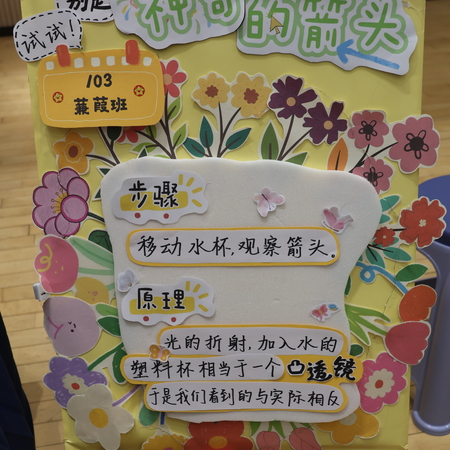 试试!
神奇的箭头
103
蒹葭班
步骤
移动水杯,观察箭头。
原理
光的折射,加入水的
塑料杯相当于一个凸透镜
于是我们看到的与实际相反